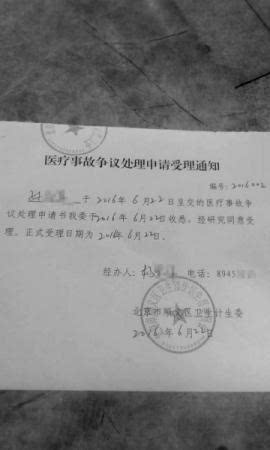 医疗事故争议处理申请受理通知
编号：2016002
于2016年6月22日呈交的医疗事故争
议处理申请书我委于2016年6月22日收悉。经研究同意受
理。正式受理日期为2016年6月22日。
经办人： 电话：8945
北京市顺义区卫生计生委
2016年6月22日